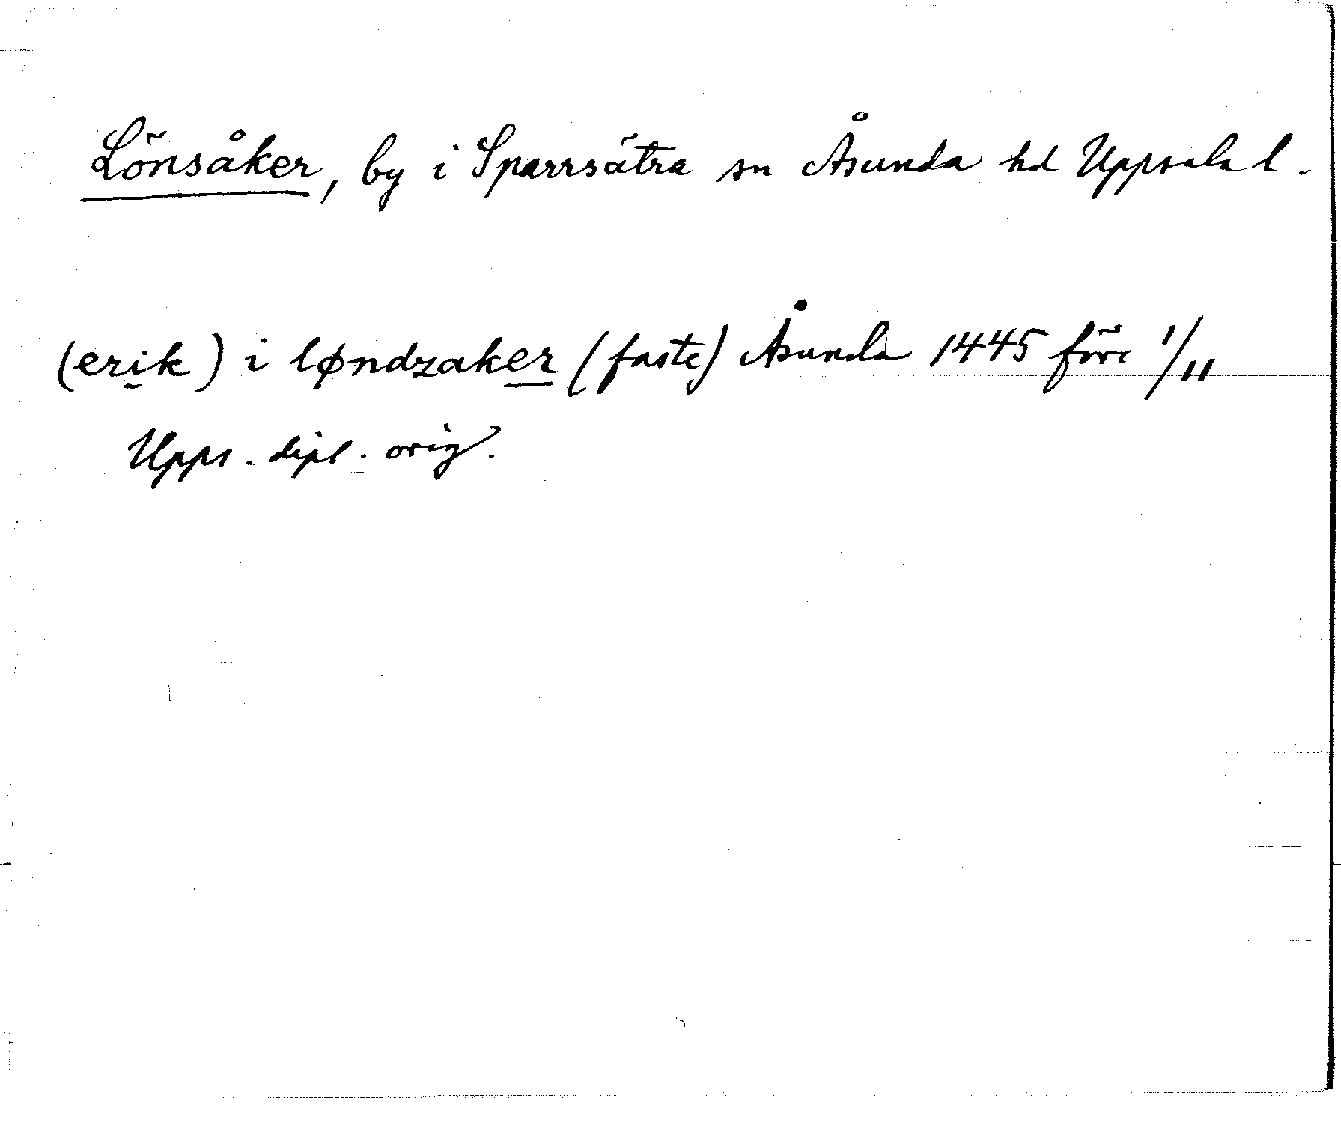 Lönsåker, by i Sparrsätra sn Åsunda hd Uppsala l.
(erik) i løndzaker (faste) Åsunda 1445 före 1/11
Upps. dipl. orig.